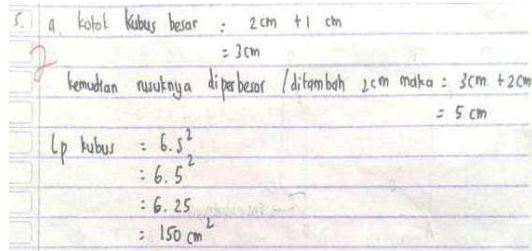 5. a. kotak kubus besar : 2cm + 1 cm
= 3cm
kemudian rusuknya diperbesar / ditambah 2cm maka = 3cm + 2cm
= 5 cm
Lp kubus : 6.s²
: 6.5²
: 6.25
: 150 cm²